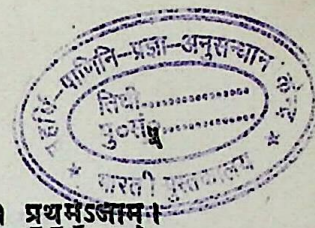 महर्षि-पाणिनि-प्रज्ञा-अनुसन्धान केन्द्र
तिथी..............
पु०सं०..............
भारती पुस्तकालय
। प्रथमेऽजाम् ।